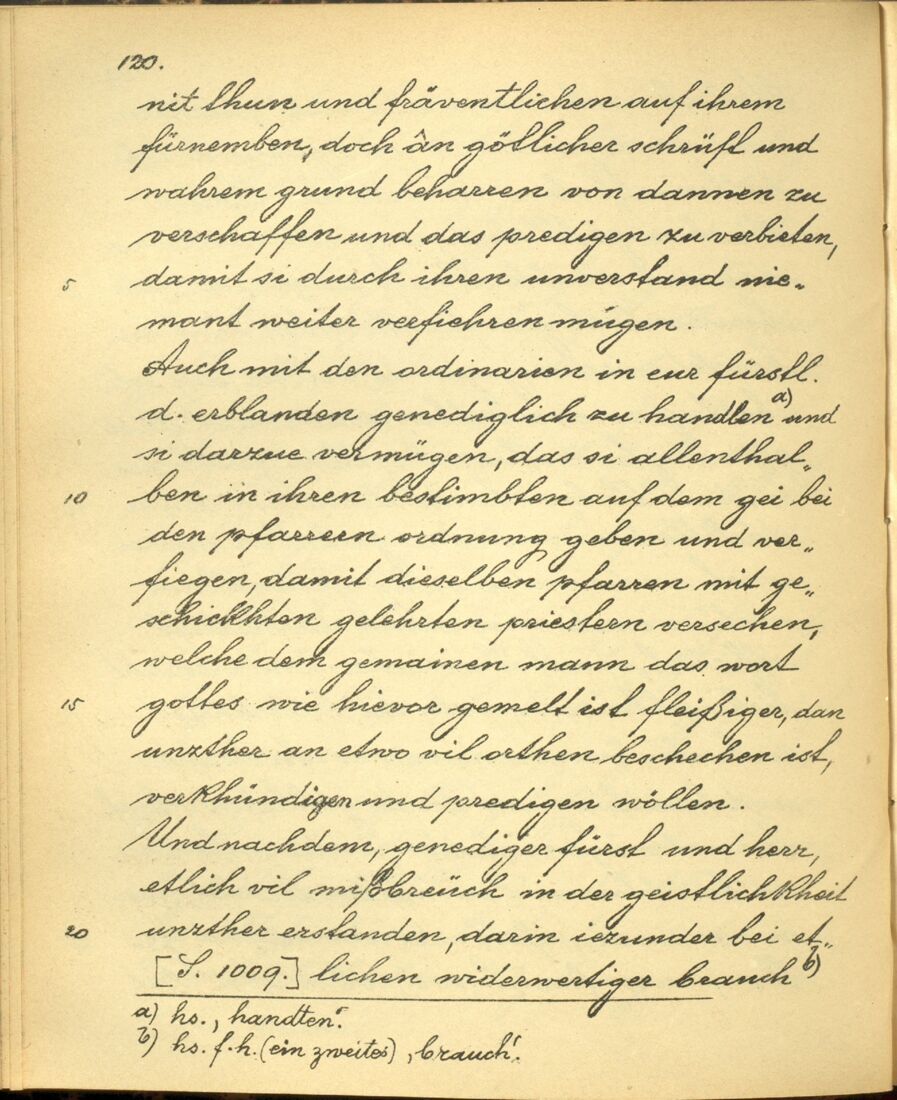 120.
nit thun und fräventlichen auf ihrem
fürnemben, doch ân götlicher schrüft und
wahrem grund beharren von dannen zu
verschaffen und das predigen zu verbieten,
5 damit si durch ihren unverstand nie„
mant weiter verfiehren mügen.
Auch mit den ordinarien in eur fürstl.
d. erblanden genediglich zu handlen a) und
si darzue vermügen, das si allenthal„
10 ben in ihren bestimbten auf dem gei bei
den pfarrern ordnung geben und ver„
fiegen, damit dieselben pfarren mit ge„
schickhten gelehrten priestern versechen,
welche dem gemainen mann das wort
15 gottes wie hievor gemelt ist fleißiger, dan
unzther an etwo vil orthen beschechen ist,
verkhündigen und predigen wöllen.
Und nachdem, genediger fürst und herr,
etlich vil mißbreüch in der geistlichkheit
20 unzther erstanden, darin iezunder bei et„
[S. 1009.] lichen widerwertiger brauch b)
a) hs. ‚handten‘.
b) hs. f. h. (ein zweites) ‚brauch‘.